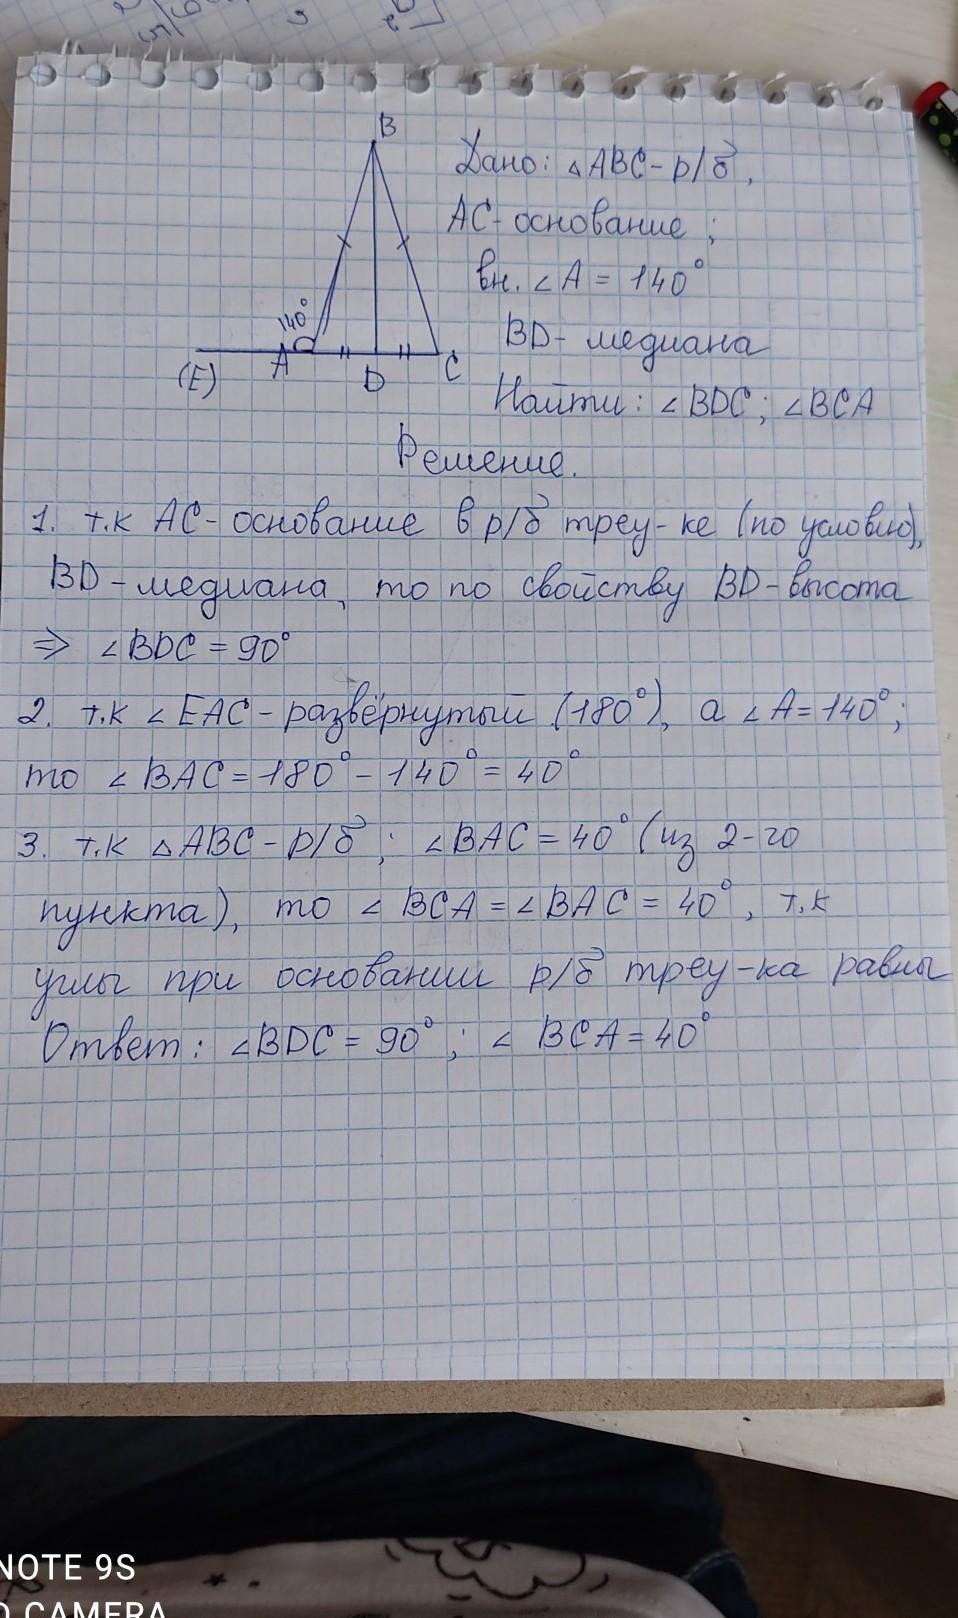 B
Дано: △ABC-р/б,
AC-основание;
вн. ∠A = 140°
BD- медиана
140°
(E) A D C
Найти: ∠BDC; ∠BCA
Решение.
1. т.к AC-основание в р/б треу-ке (по условию),
BD-медиана, то по свойству BD-высота
⇒ ∠BDC = 90°
2. т.к ∠EAC-развёрнутый (180°), а ∠A=140°;
то ∠BAC=180°-140°=40°
3. т.к △ABC-р/б; ∠BAC=40° (из 2-го
пункта), то ∠BCA=∠BAC=40°, т.к
углы при основании р/б треу-ка равны
Ответ: ∠BDC=90°; ∠BCA=40°
NOTE 9S
CAMERA